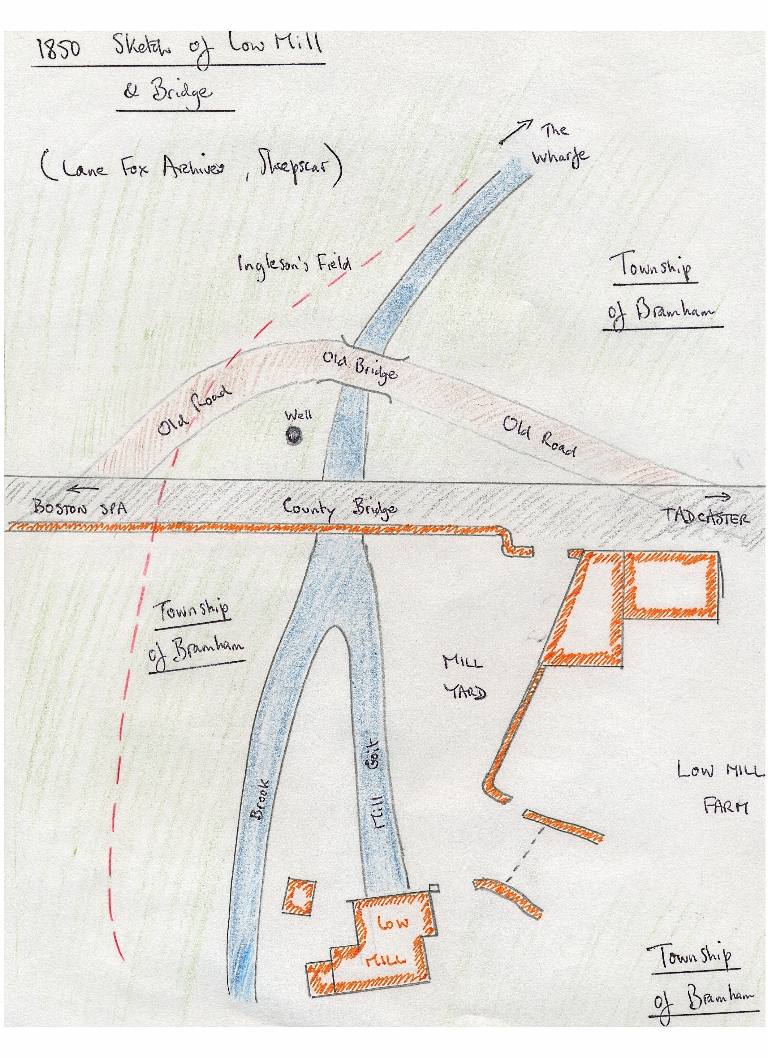 1850 Sketch of Low Mill
& Bridge
(Lane Fox Archives, Sheepscar)
The
Wharfe
Ingleson's Field
Township
of Bramham
Old Bridge
Old Road
Well
Old Road
BOSTON SPA
County Bridge
TADCASTER
Township
of Bramham
MILL
YARD
Brook
Mill Goit
LOW MILL
FARM
LOW
MILL
Township
of Bramham